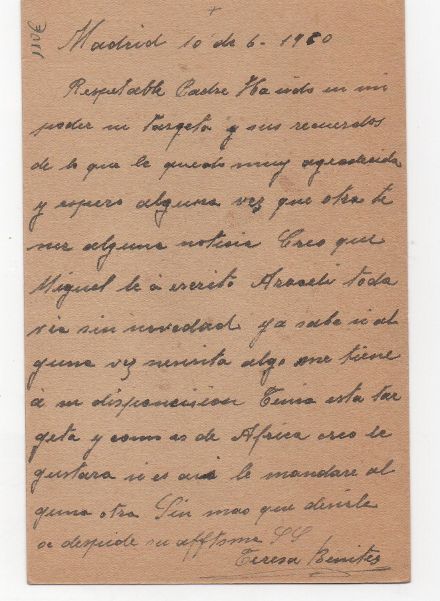 110€
Madrid 10 de 6-1980
Respetable Padre Ha sido en mi
poder su targeta y sus recuerdos
de lo que le quedo muy agradecida
y espero alguna vez que otra te
ner alguna noticia Creo que
Miguel le á escrito Araceli toda
via sin novedad ya sabe si al
guna vez nesesita algo me tiene
á su disponcision Tenia esta tar
geta y como es de Africa creo le
gustara si es asi le mandare al
guna otra Sin mas que desirle
se despide su afftsma SS
Teresa Benites